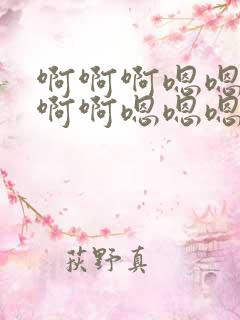 啊啊啊嗯嗯
啊啊嗯嗯嗯
荻野真